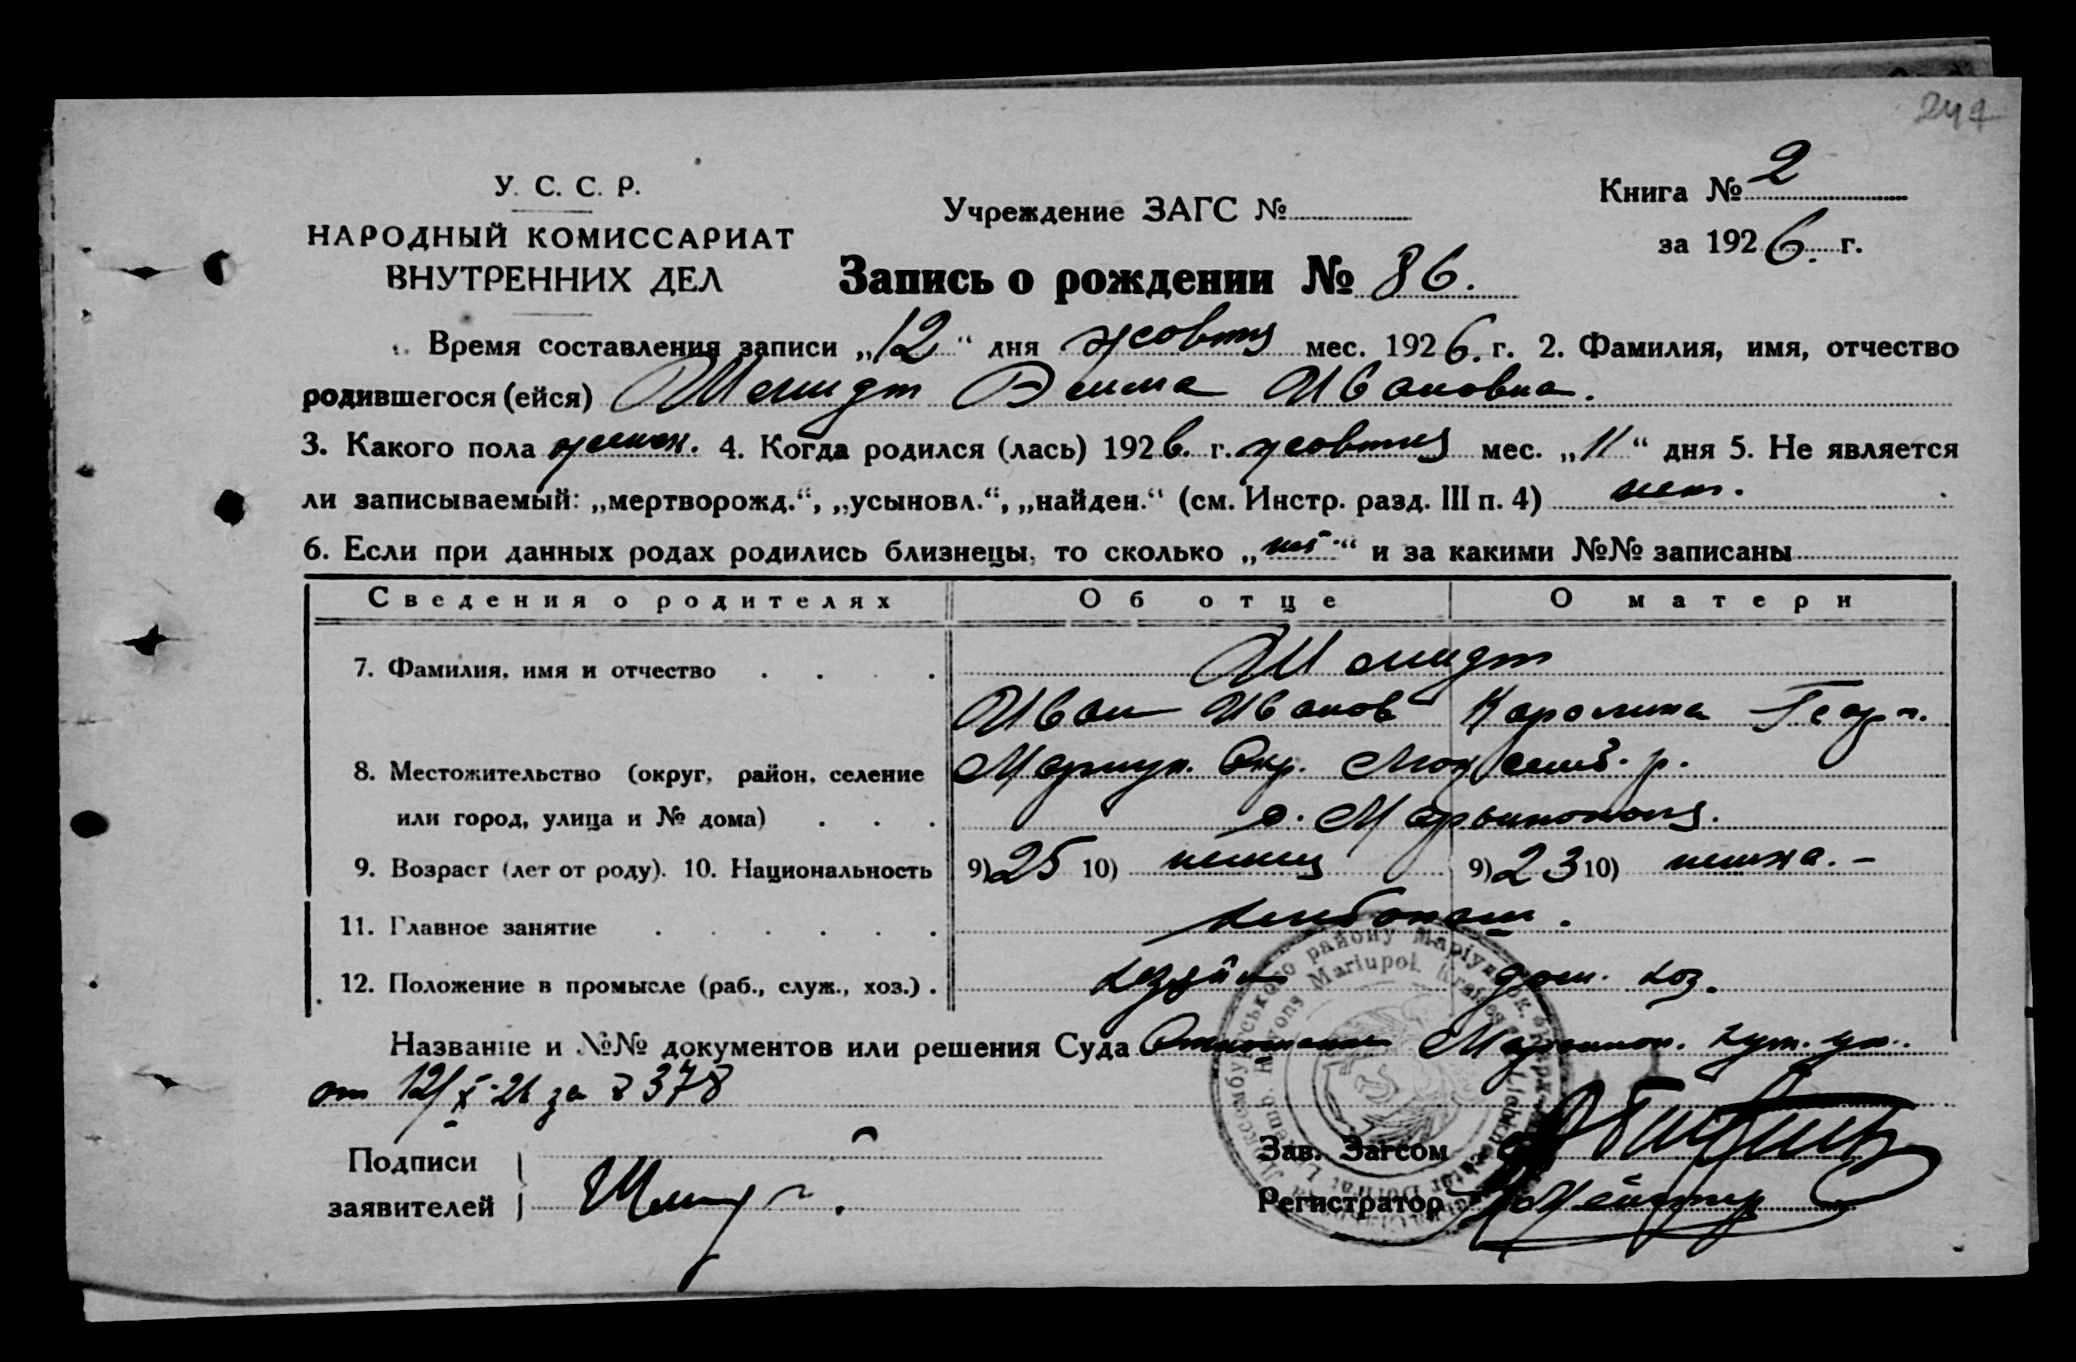 249
У. С. С. Р.
НАРОДНЫЙ КОМИССАРИАТ
ВНУТРЕННИХ ДЕЛ
Учреждение ЗАГС №
Книга № 2
за 1926 г.
Запись о рождении № 86.
Время составления записи „12“ дня жовтня мес. 1926. г. 2. Фамилия, имя, отчество
родившегося (ейся) Шмидт Эмма Ивановна.
3. Какого пола женск. 4. Когда родился (лась) 1926. г. жовтня мес. „11“ дня 5. Не является
ли записываемый: „мертворожд.“, „усыновл.“, „найден.“ (см. Инстр. разд. III п. 4) нет.
6. Если при данных родах родились близнецы, то сколько „нет“ и за какими №№ записаны
Сведения о родителях Об отце О матери
7. Фамилия, имя и отчество Шмидт
Иван Иванов Каролина Георг.
8. Местожительство (округ, район, селение Мариуп. Окр. Люксемб. р.
или город, улица и № дома)
9. Возраст (лет от роду). 10. Национальность 9) 25 10) немец 9) 23 10) немка. –
11. Главное занятие хлебопаш.
12. Положение в промысле (раб., служ., хоз.) хозяин дом. хоз.
Название и №№ документов или решения Суда
от 12/X-26 за № 378
Подписи
заявителей
Зав. Загсом
Регистратор